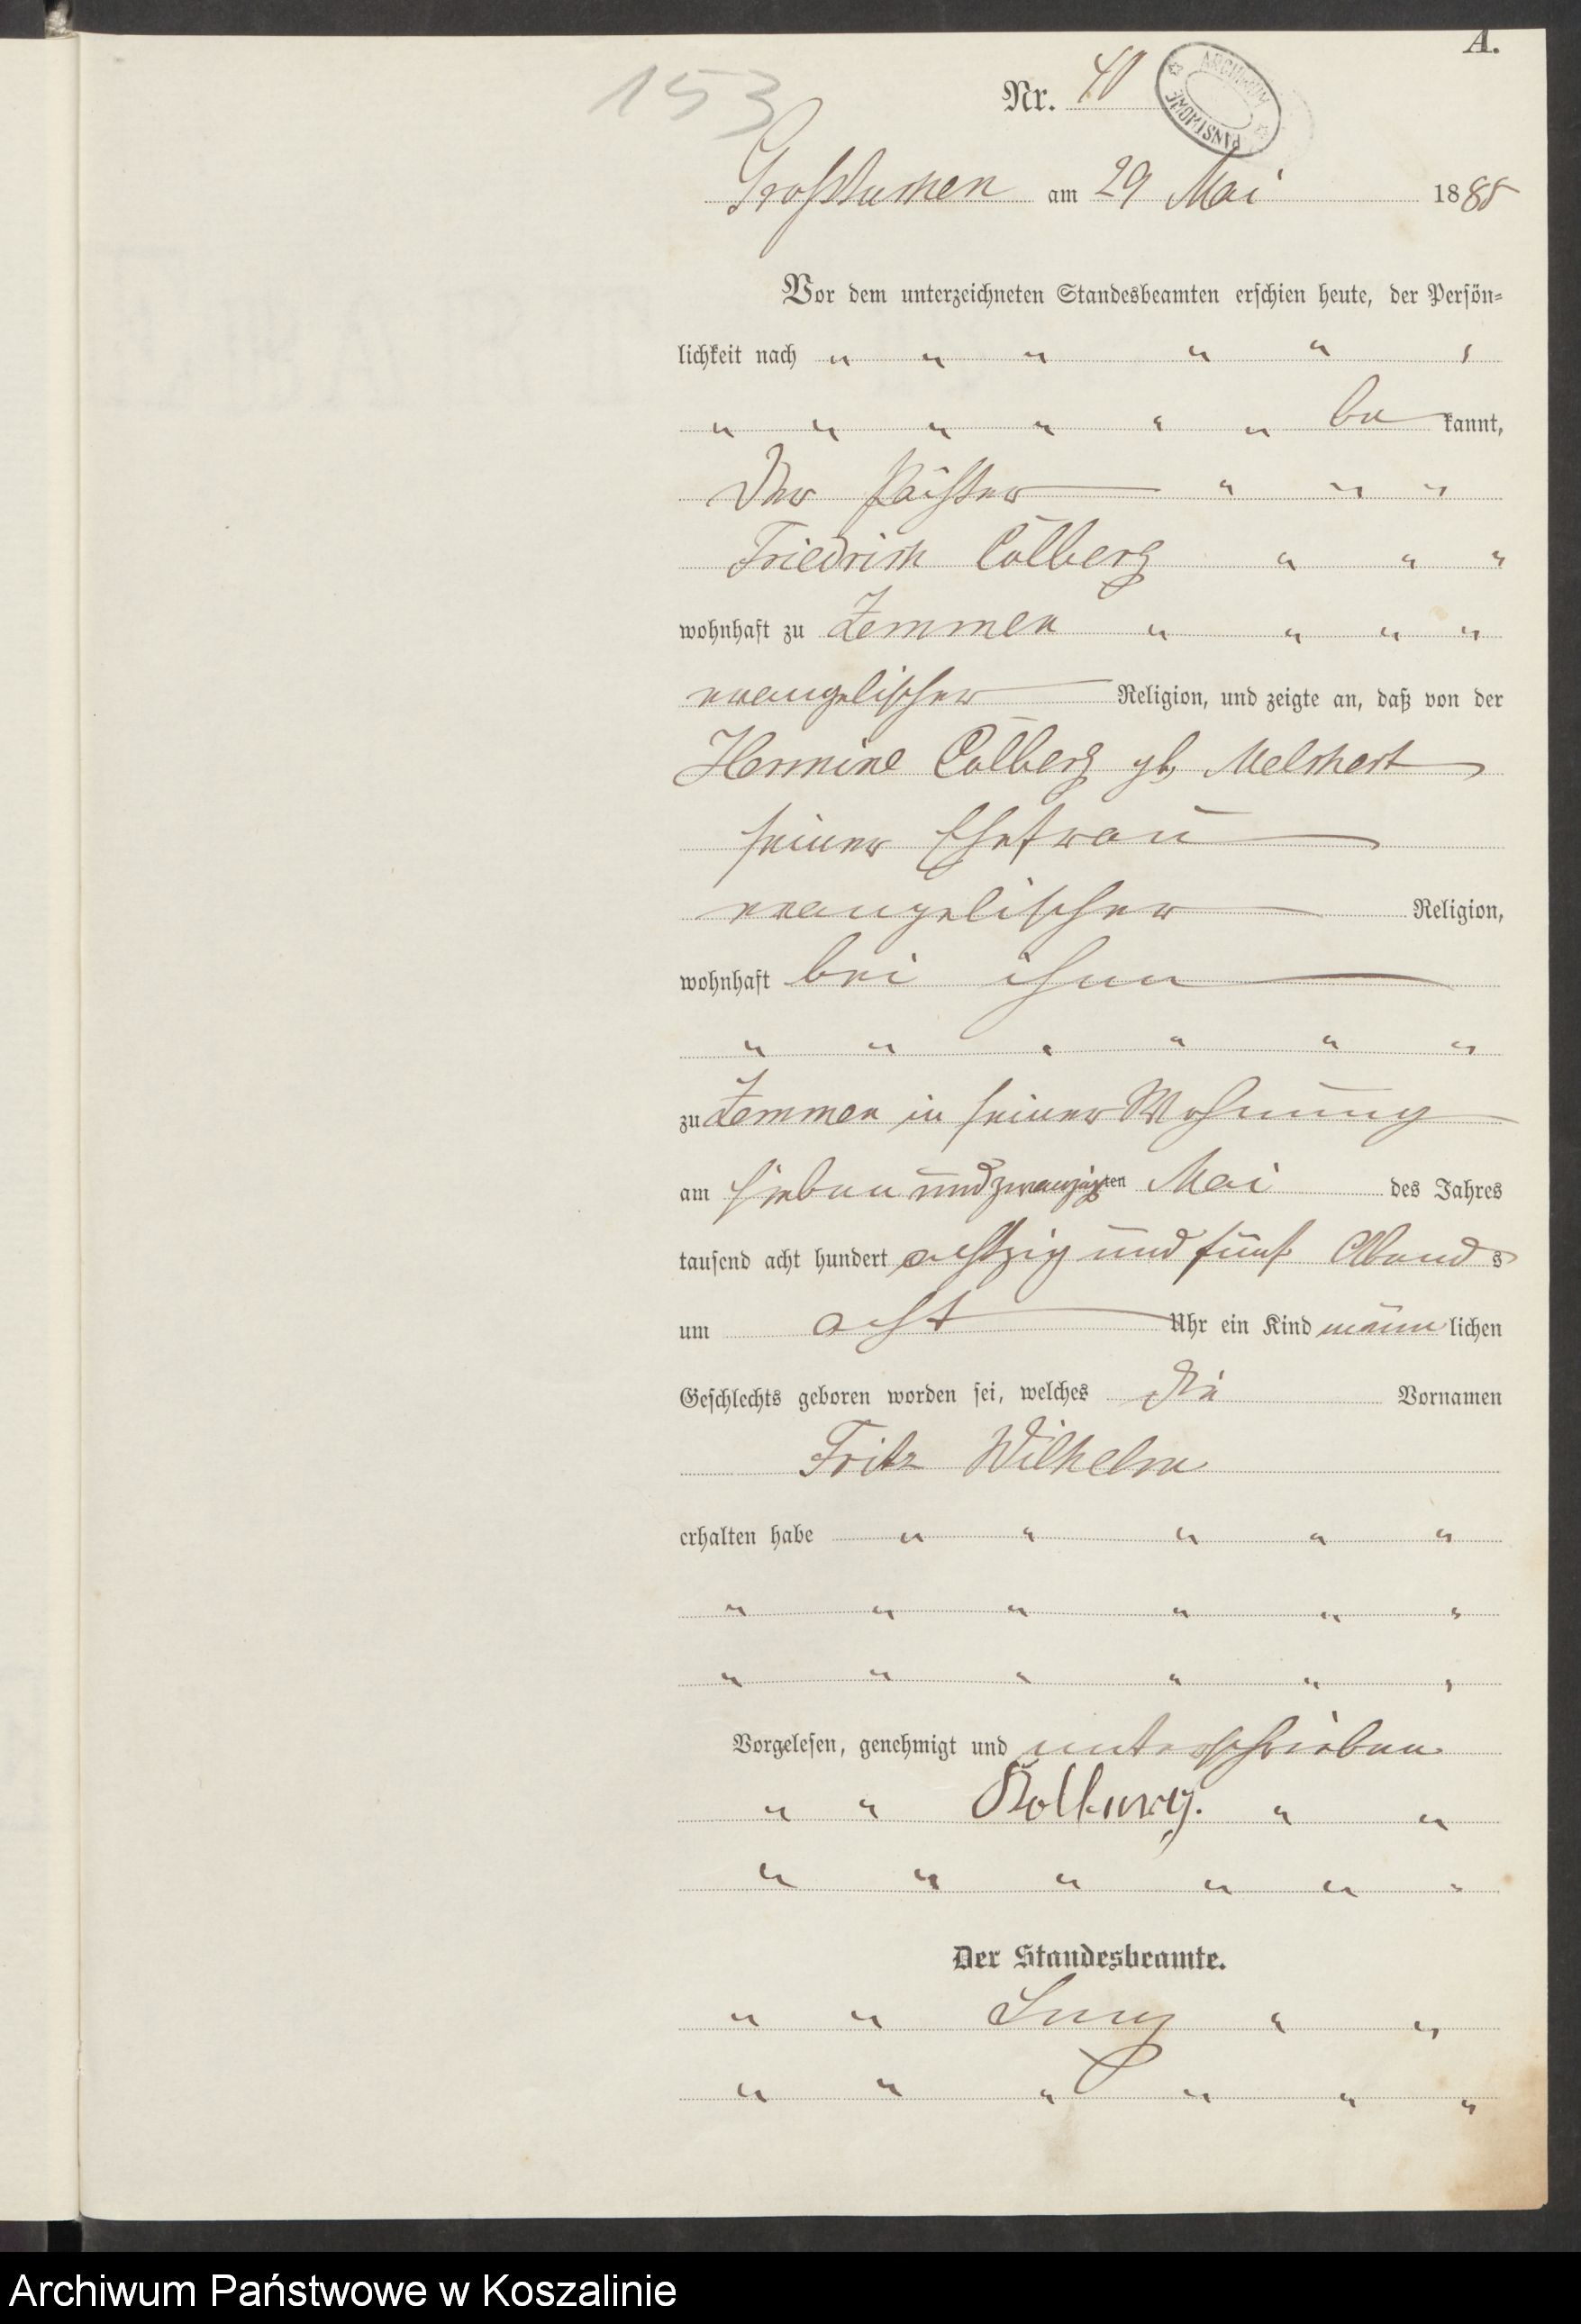 A.
153
Nr. 40
ARCHIWUM PAŃSTWOWE
Großtuchen am 29 Mai 1885
Vor dem unterzeichneten Standesbeamten erschien heute, der Persön=
lichkeit nach " " " " " "
" " " " " " be kannt,
Der " " "
Friedrich Colberg " " "
wohnhaft zu Zemmen " " " "
evangelischer Religion, und zeigte an, daß von der
Hermine Colberg gb Melchert
seiner Ehefrau
evangelischer Religion,
wohnhaft bei ihm
" " " " " "
zu Zemmen in seiner Wohnung
am sieben undzwanzigsten Mai des Jahres
tausend acht hundert achtzig und fünf Abend s
um acht Uhr ein Kind männ lichen
Geschlechts geboren worden sei, welches die Vornamen
Fritz Wilhelm
erhalten habe " " " " "
" " " " " "
" " " " " "
Vorgelesen, genehmigt und unterschrieben
" " Kolberg. " "
" " " " " "
Der Standesbeamte.
" " " "
" " " " " "
Archiwum Państwowe w Koszalinie